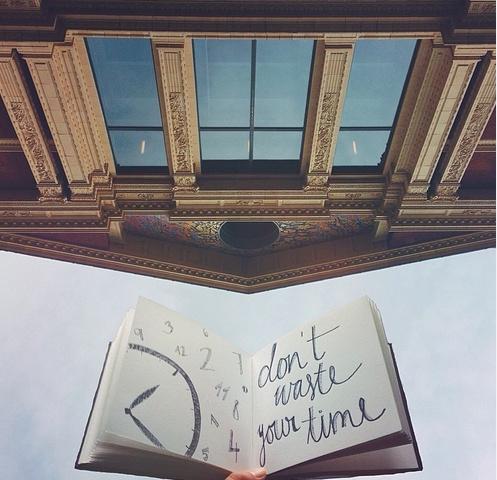 9 3 6
12 2 7
44 8 0
8
5 4
don't
waste
your time